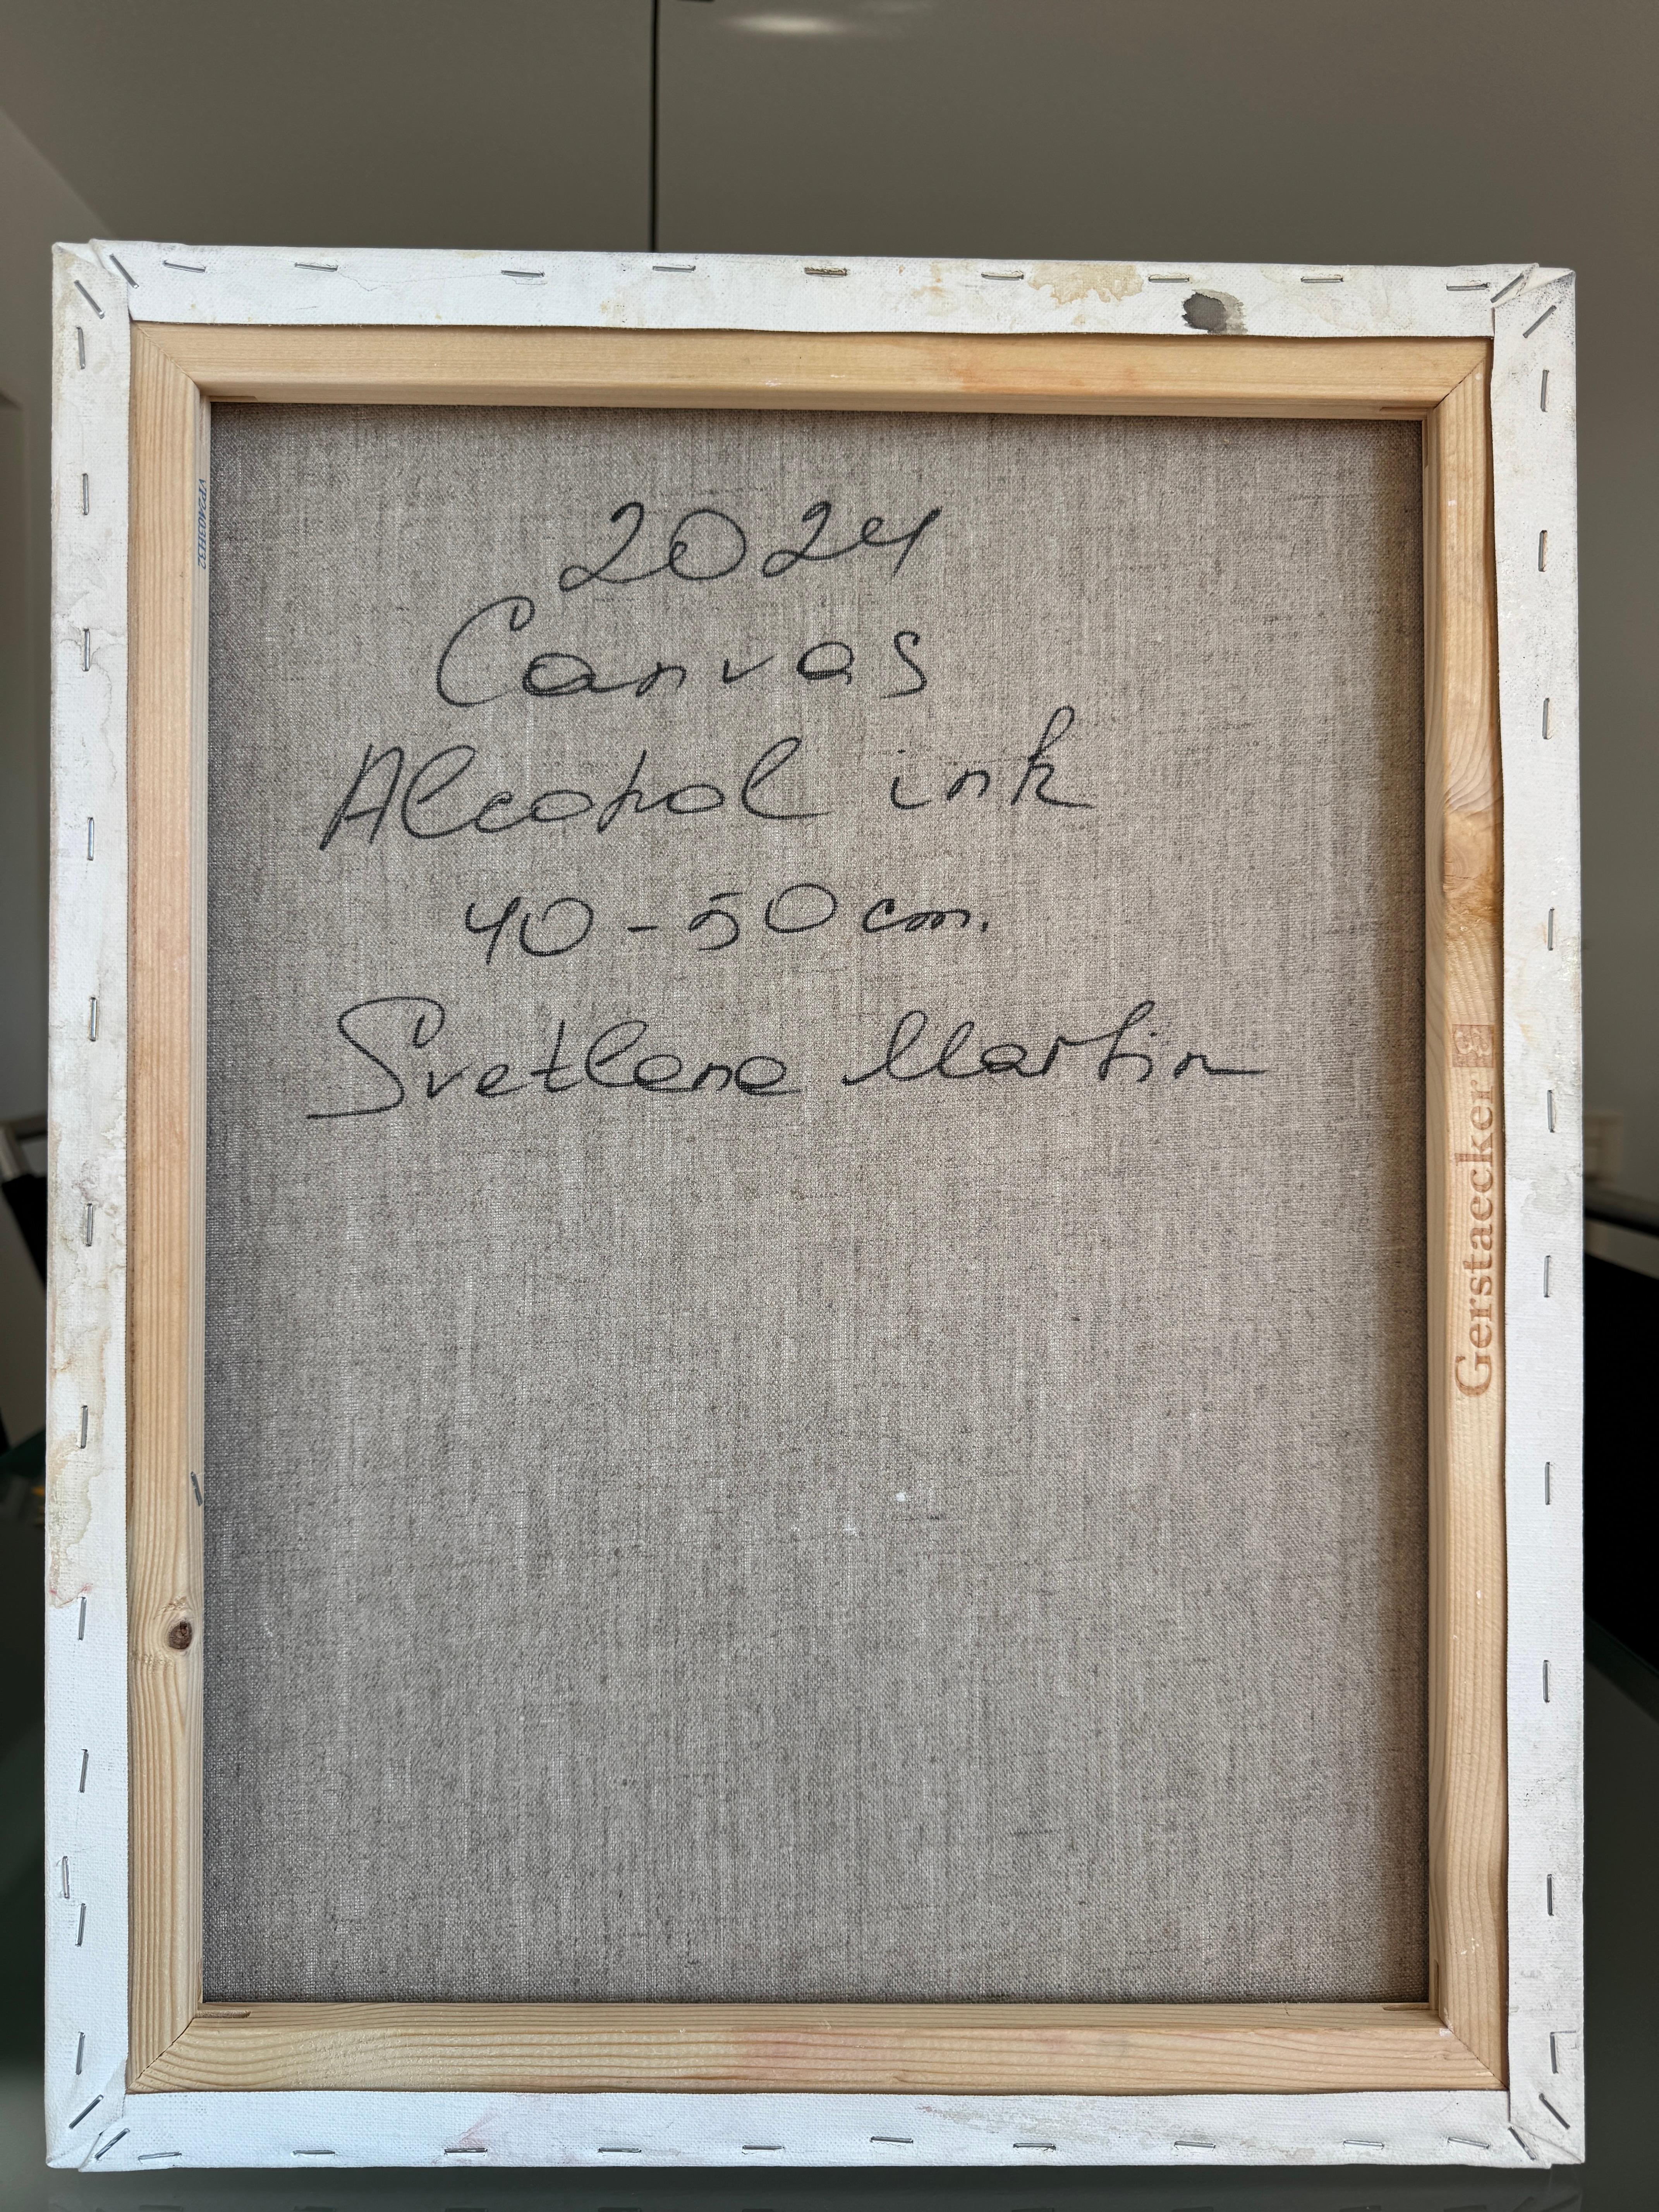 2024
Canvas
Alcohol ink
40-50 cm.
Svetlana Martin
Gerstaecker
VP2A03H32